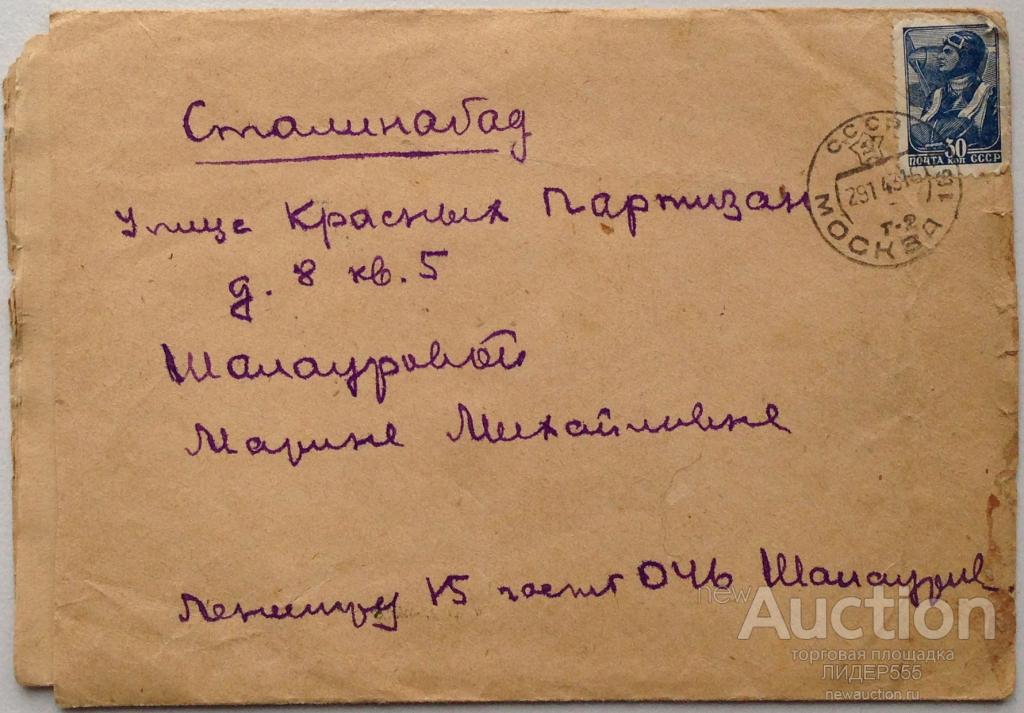 Сталинабад
Улице Красных Партизан
д. 8 кв. 5
Шалауровой
Марине Михайловне
15 ОЧБ Шалауров.
30
ПОЧТА КОП СССР
СССР
291 43
МОСКВА
Г-2
newAuction
торговая площадка
ЛИДЕР555
newauction.ru